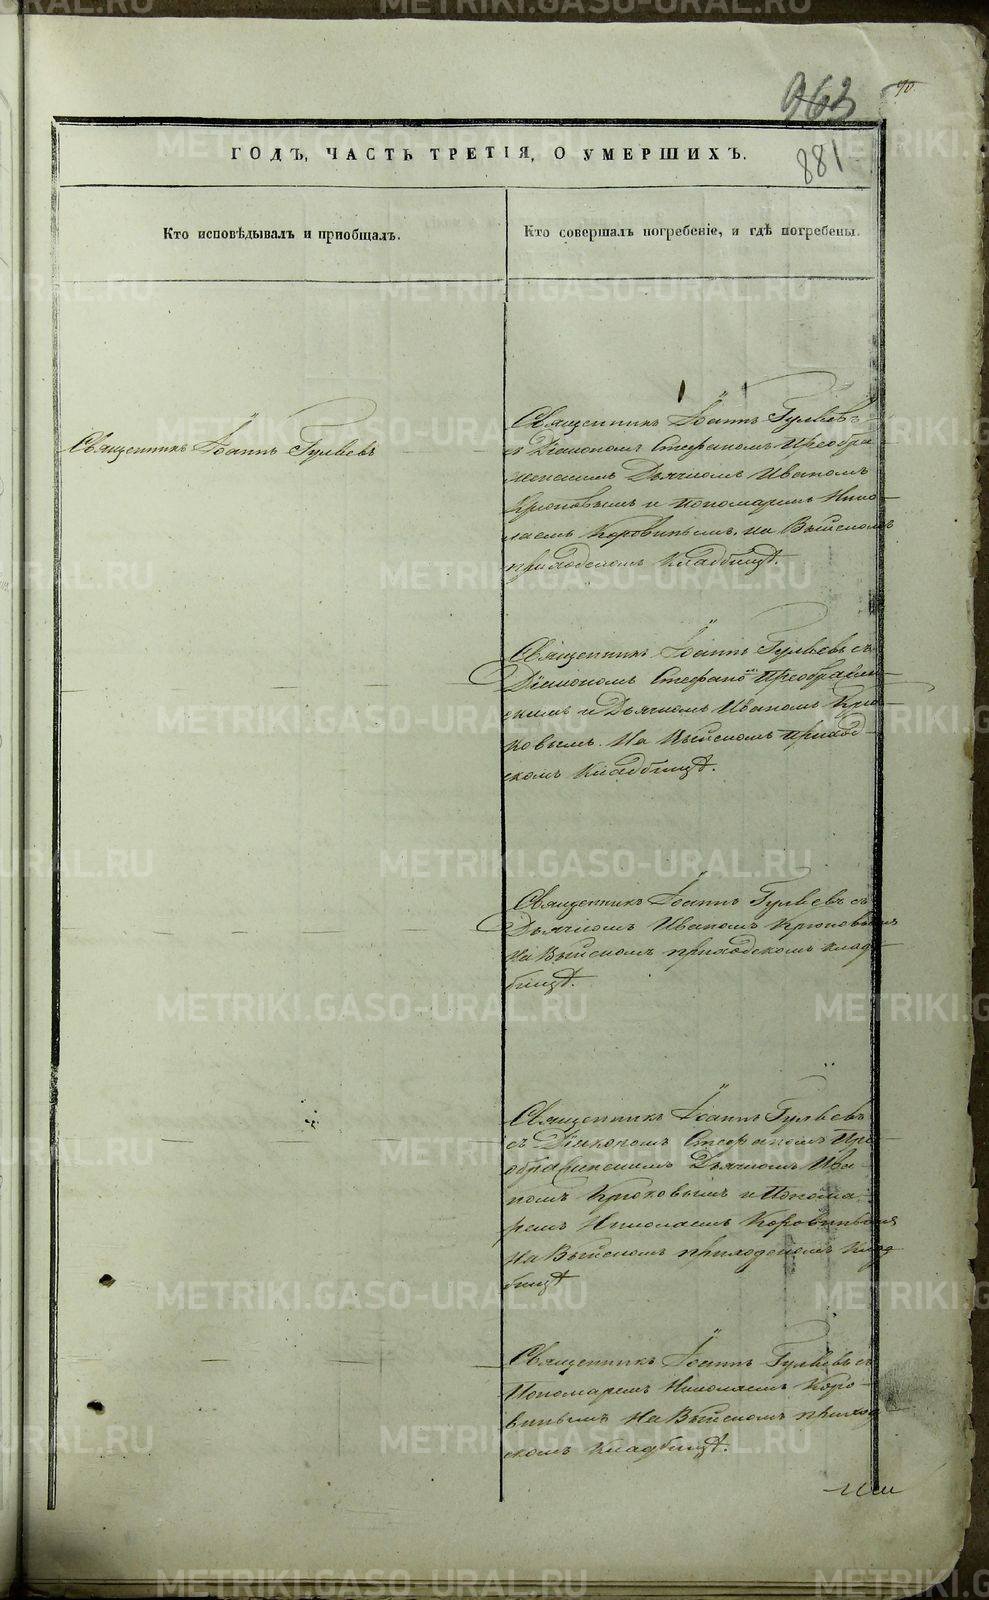 963
881
ГОДЪ, ЧАСТЬ ТРЕТІЯ, О УМЕРШИХЪ.
Кто исповѣдывалъ и пріобщалъ.
Кто совершалъ погребеніе, и гдѣ погребены.
Священникъ Іоаннъ Гуляевъ
Священникъ Іоаннъ Гуляевъ
съ Діакономъ Стефаномъ Преобра
женскимъ Дьячкомъ Иваномъ
Крюковымъ и Пономаремъ Нико
лаемъ Коровинымъ. на Выйскомъ
приходскомъ кладбищѣ.
Священникъ Іоаннъ Гуляевъ съ
Діакономъ Стефано Преображен
скимъ и Дьячкомъ Иваномъ Крю
ковымъ. На Выйскомъ приход
скомъ кладбищѣ.
Священникъ Іоаннъ Гуляевъ съ
Дьячкомъ Иваномъ Крюковымъ
на Выйскомъ приходскомъ клад
бищѣ.
Священникъ Іоаннъ Гуляевъ
съ Діакономъ Стефаномъ Пре
ображенскимъ Дьячкомъ Ива
номъ Крюковымъ и Понома
ремъ Николаемъ Коровинымъ
На Выйскомъ приходскомъ клад
бищѣ
Священникъ Іоаннъ Гуляевъ съ
Пономаремъ Николаемъ Коро
винымъ На Выйскомъ приход
скомъ кладбищѣ.
METRIKI.GASO-URAL.RU